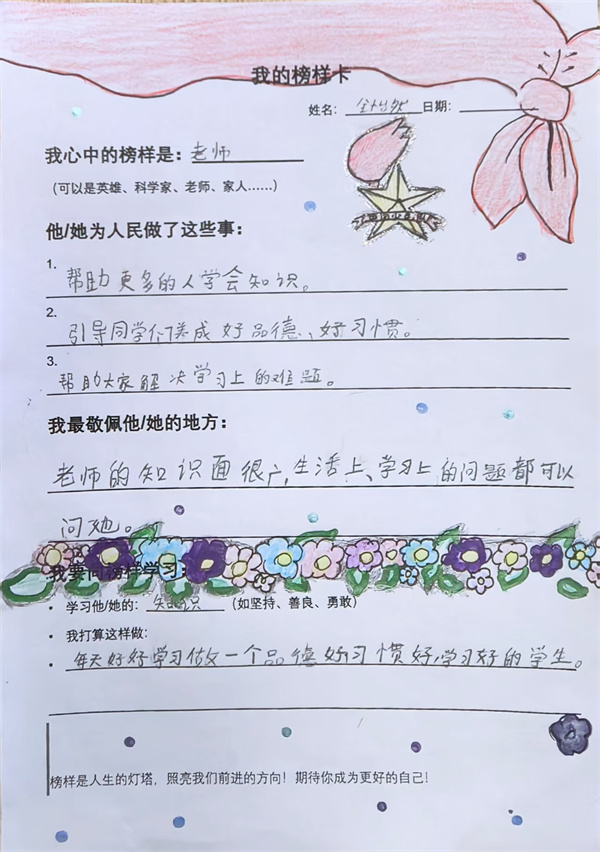 我的榜样卡
姓名： 日期：
我心中的榜样是：老师
（可以是英雄、科学家、老师、家人……）
他/她为人民做了这些事：
1. 帮助更多的人学会知识。
2. 引导同学们养成好品德、好习惯。
3. 帮助大家解决学习上的难题。
我最敬佩他/她的地方：
老师的知识面很广，生活上、学习上的问题都可以
问她。
我要向榜样学习：
• 学习他/她的：知识（如坚持、善良、勇敢）
• 我打算这样做：
• 每天好好学习做一个品德好习惯好，学习好的学生。
榜样是人生的灯塔，照亮我们前进的方向！期待你成为更好的自己！